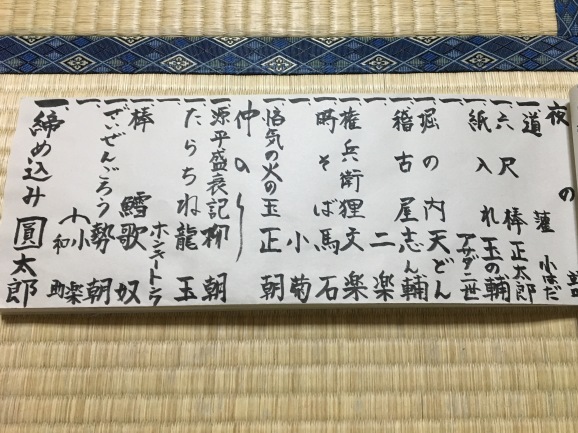 夜の
一 道灌 小はだ
一 六尺棒 正太郎
一 紙入れ 玉の輔
一 アサダ二世
一 堀の内 天どん
一 稽古屋 志ん輔
一 二楽
一 権兵衛狸 文楽
一 時そば 馬石
一 小菊
一 悋気の火の玉 正朝
仲の
一 源平盛衰記 柳朝
一 たらちね 龍玉
ホンキートンク
一 棒鱈 歌奴
一 ざいぜんごろう 勢朝
一 小楽
和助
一 締め込み 圓太郎